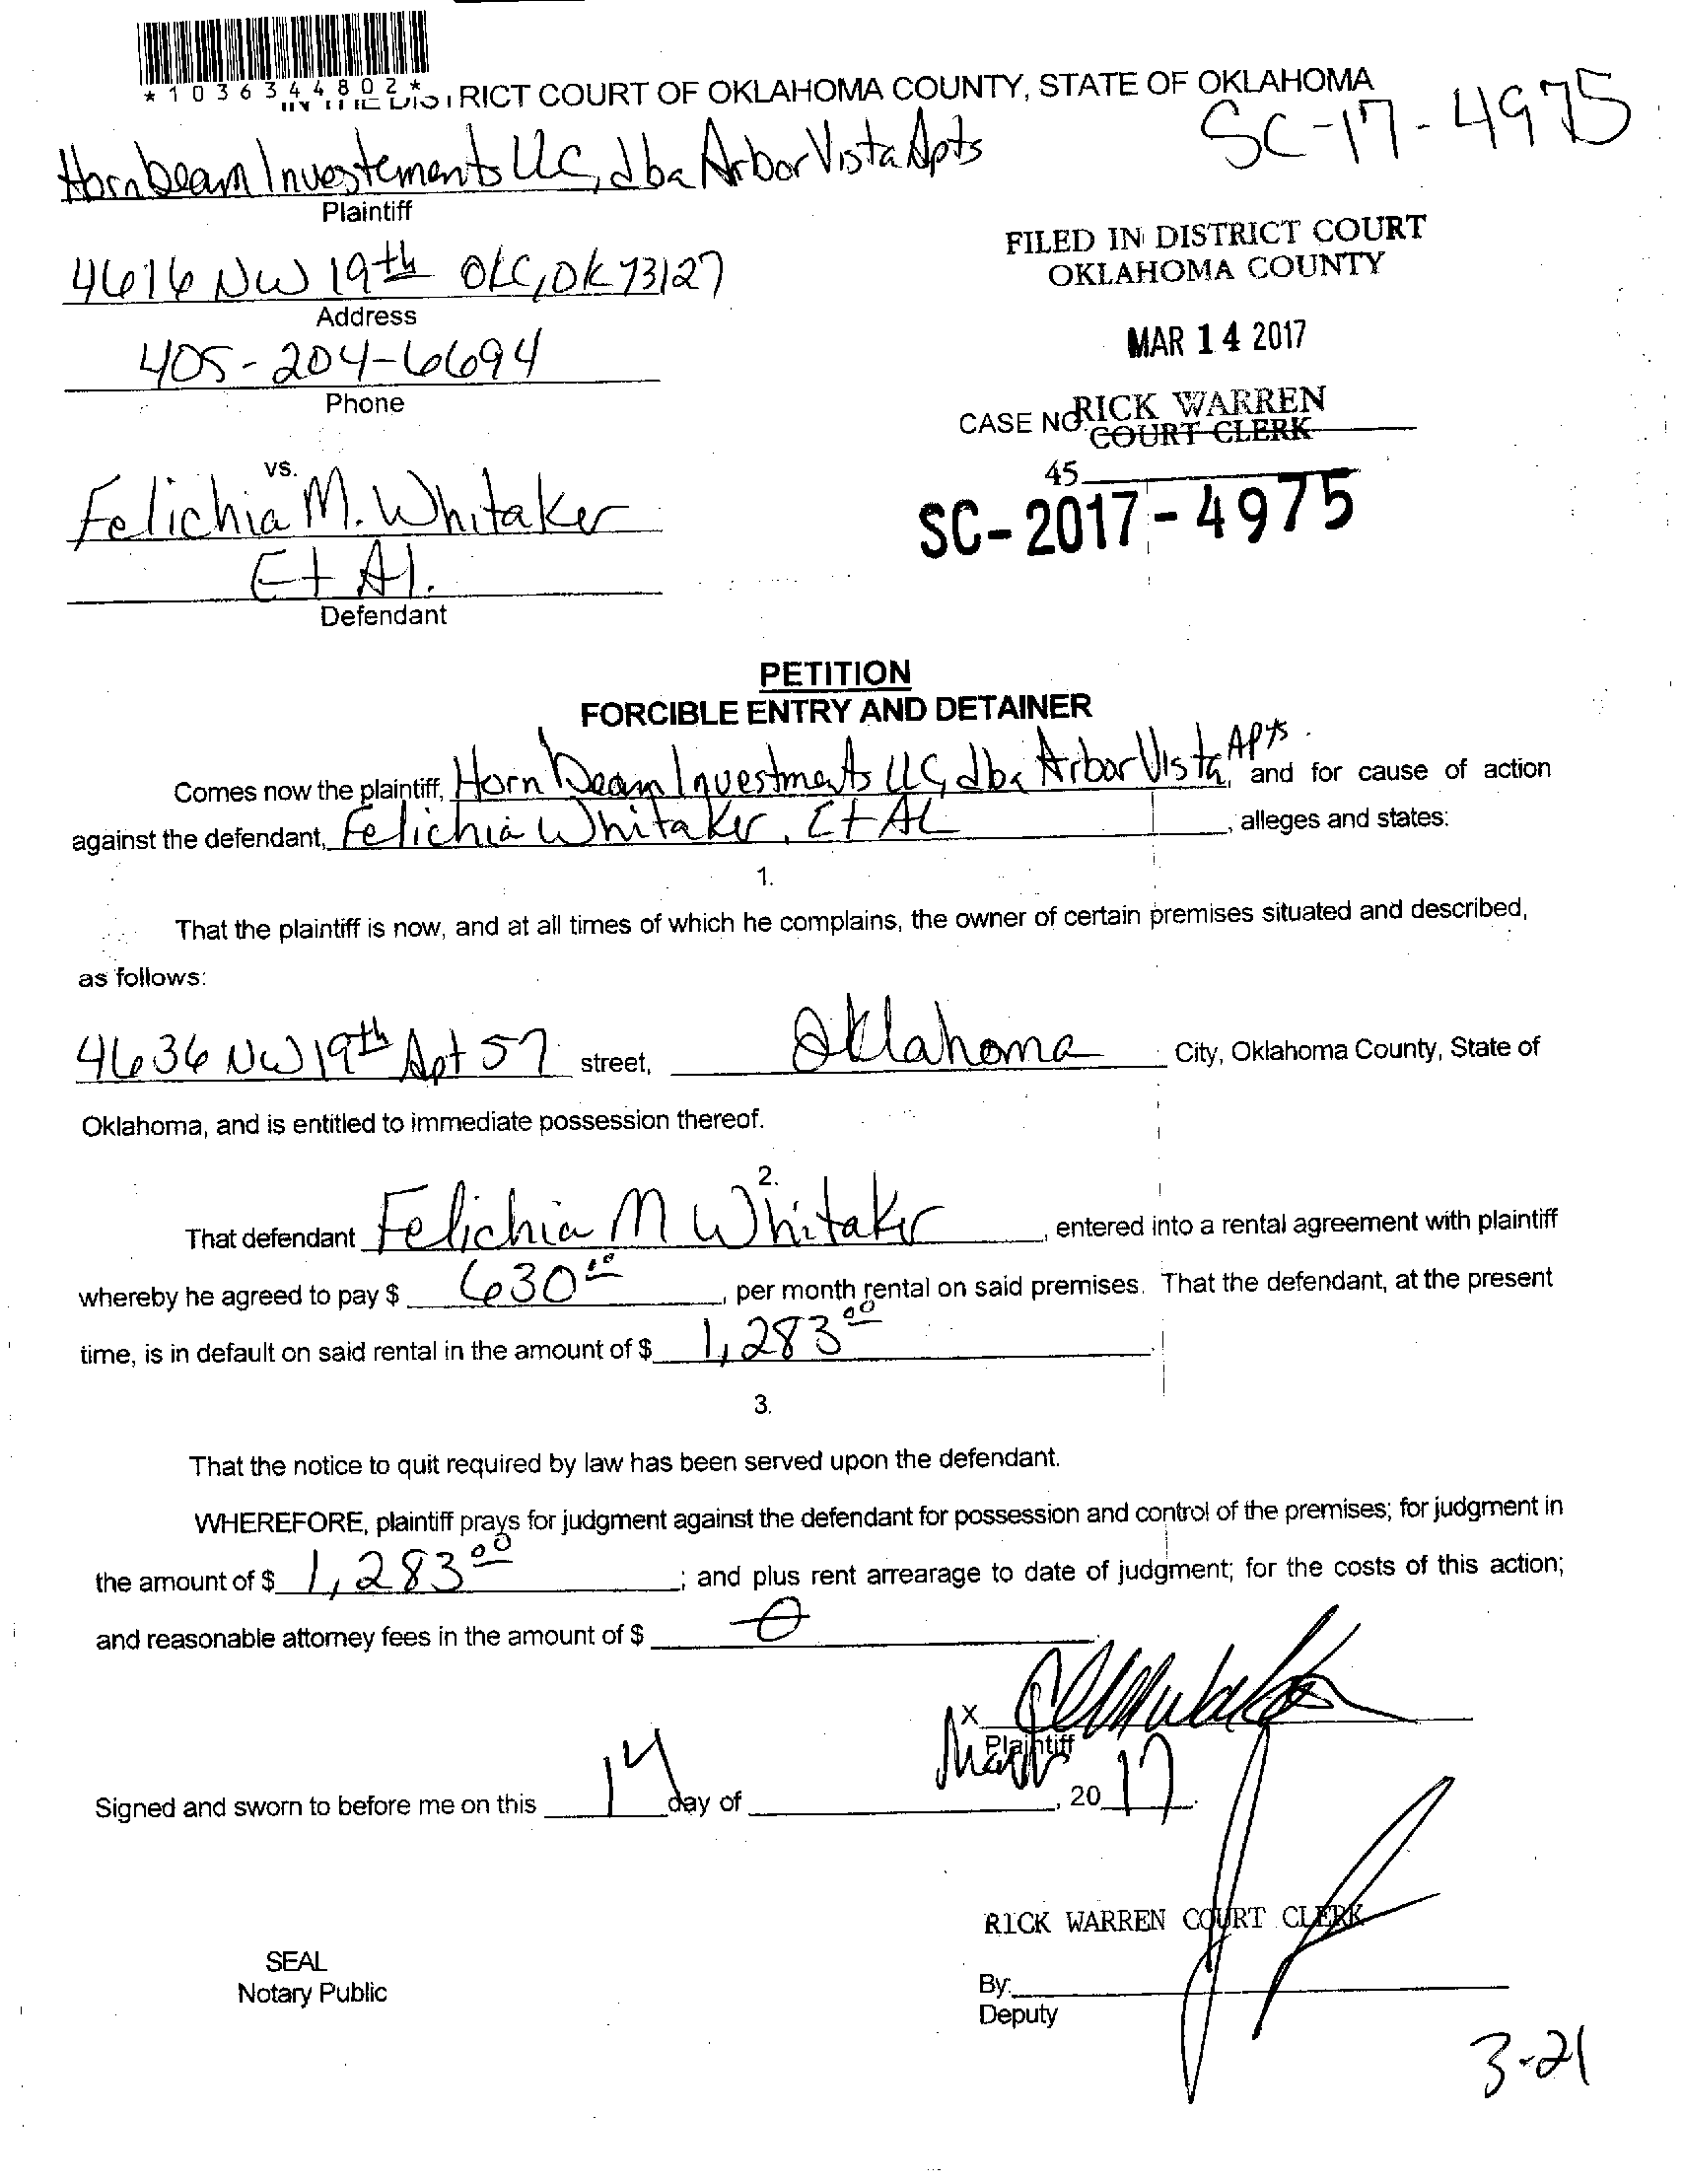 *1036344802*
IN THE DISTRICT COURT OF OKLAHOMA COUNTY, STATE OF OKLAHOMA
SC-17-4975
Hornbeam Investements LLC, dba Arbor Vista Apts
Plaintiff
4616 NW 19th OKC, OK 73127
Address
405-204-6694
Phone
FILED IN DISTRICT COURT
OKLAHOMA COUNTY
MAR 14 2017
RICK WARREN
CASE NO.
COURT CLERK
45
SC-2017-4975
vs.
Felichia M. Whitaker
Et Al.
Defendant
PETITION
FORCIBLE ENTRY AND DETAINER
Comes now the plaintiff, Hornbeam Investments LLC, dba Arbor Vista Apts. and for cause of action
against the defendant, Felichia Whitaker, Et AL, alleges and states:
1.
That the plaintiff is now, and at all times of which he complains, the owner of certain premises situated and described,
as follows:
4636 NW 19th Apt 57 street, Oklahoma City, Oklahoma County, State of
Oklahoma, and is entitled to immediate possession thereof.
2.
That defendant Felichia M Whitaker, entered into a rental agreement with plaintiff
whereby he agreed to pay $ 630.00, per month rental on said premises. That the defendant, at the present
time, is in default on said rental in the amount of $ 1,283.00.
3.
That the notice to quit required by law has been served upon the defendant.
WHEREFORE, plaintiff prays for judgment against the defendant for possession and control of the premises; for judgment in
the amount of $ 1,283.00; and plus rent arrearage to date of judgment; for the costs of this action;
and reasonable attorney fees in the amount of $ 0
X
Plaintiff
Signed and sworn to before me on this 14 day of March, 2017.
RICK WARREN COURT CLERK
SEAL
Notary Public
By:
Deputy
3-21